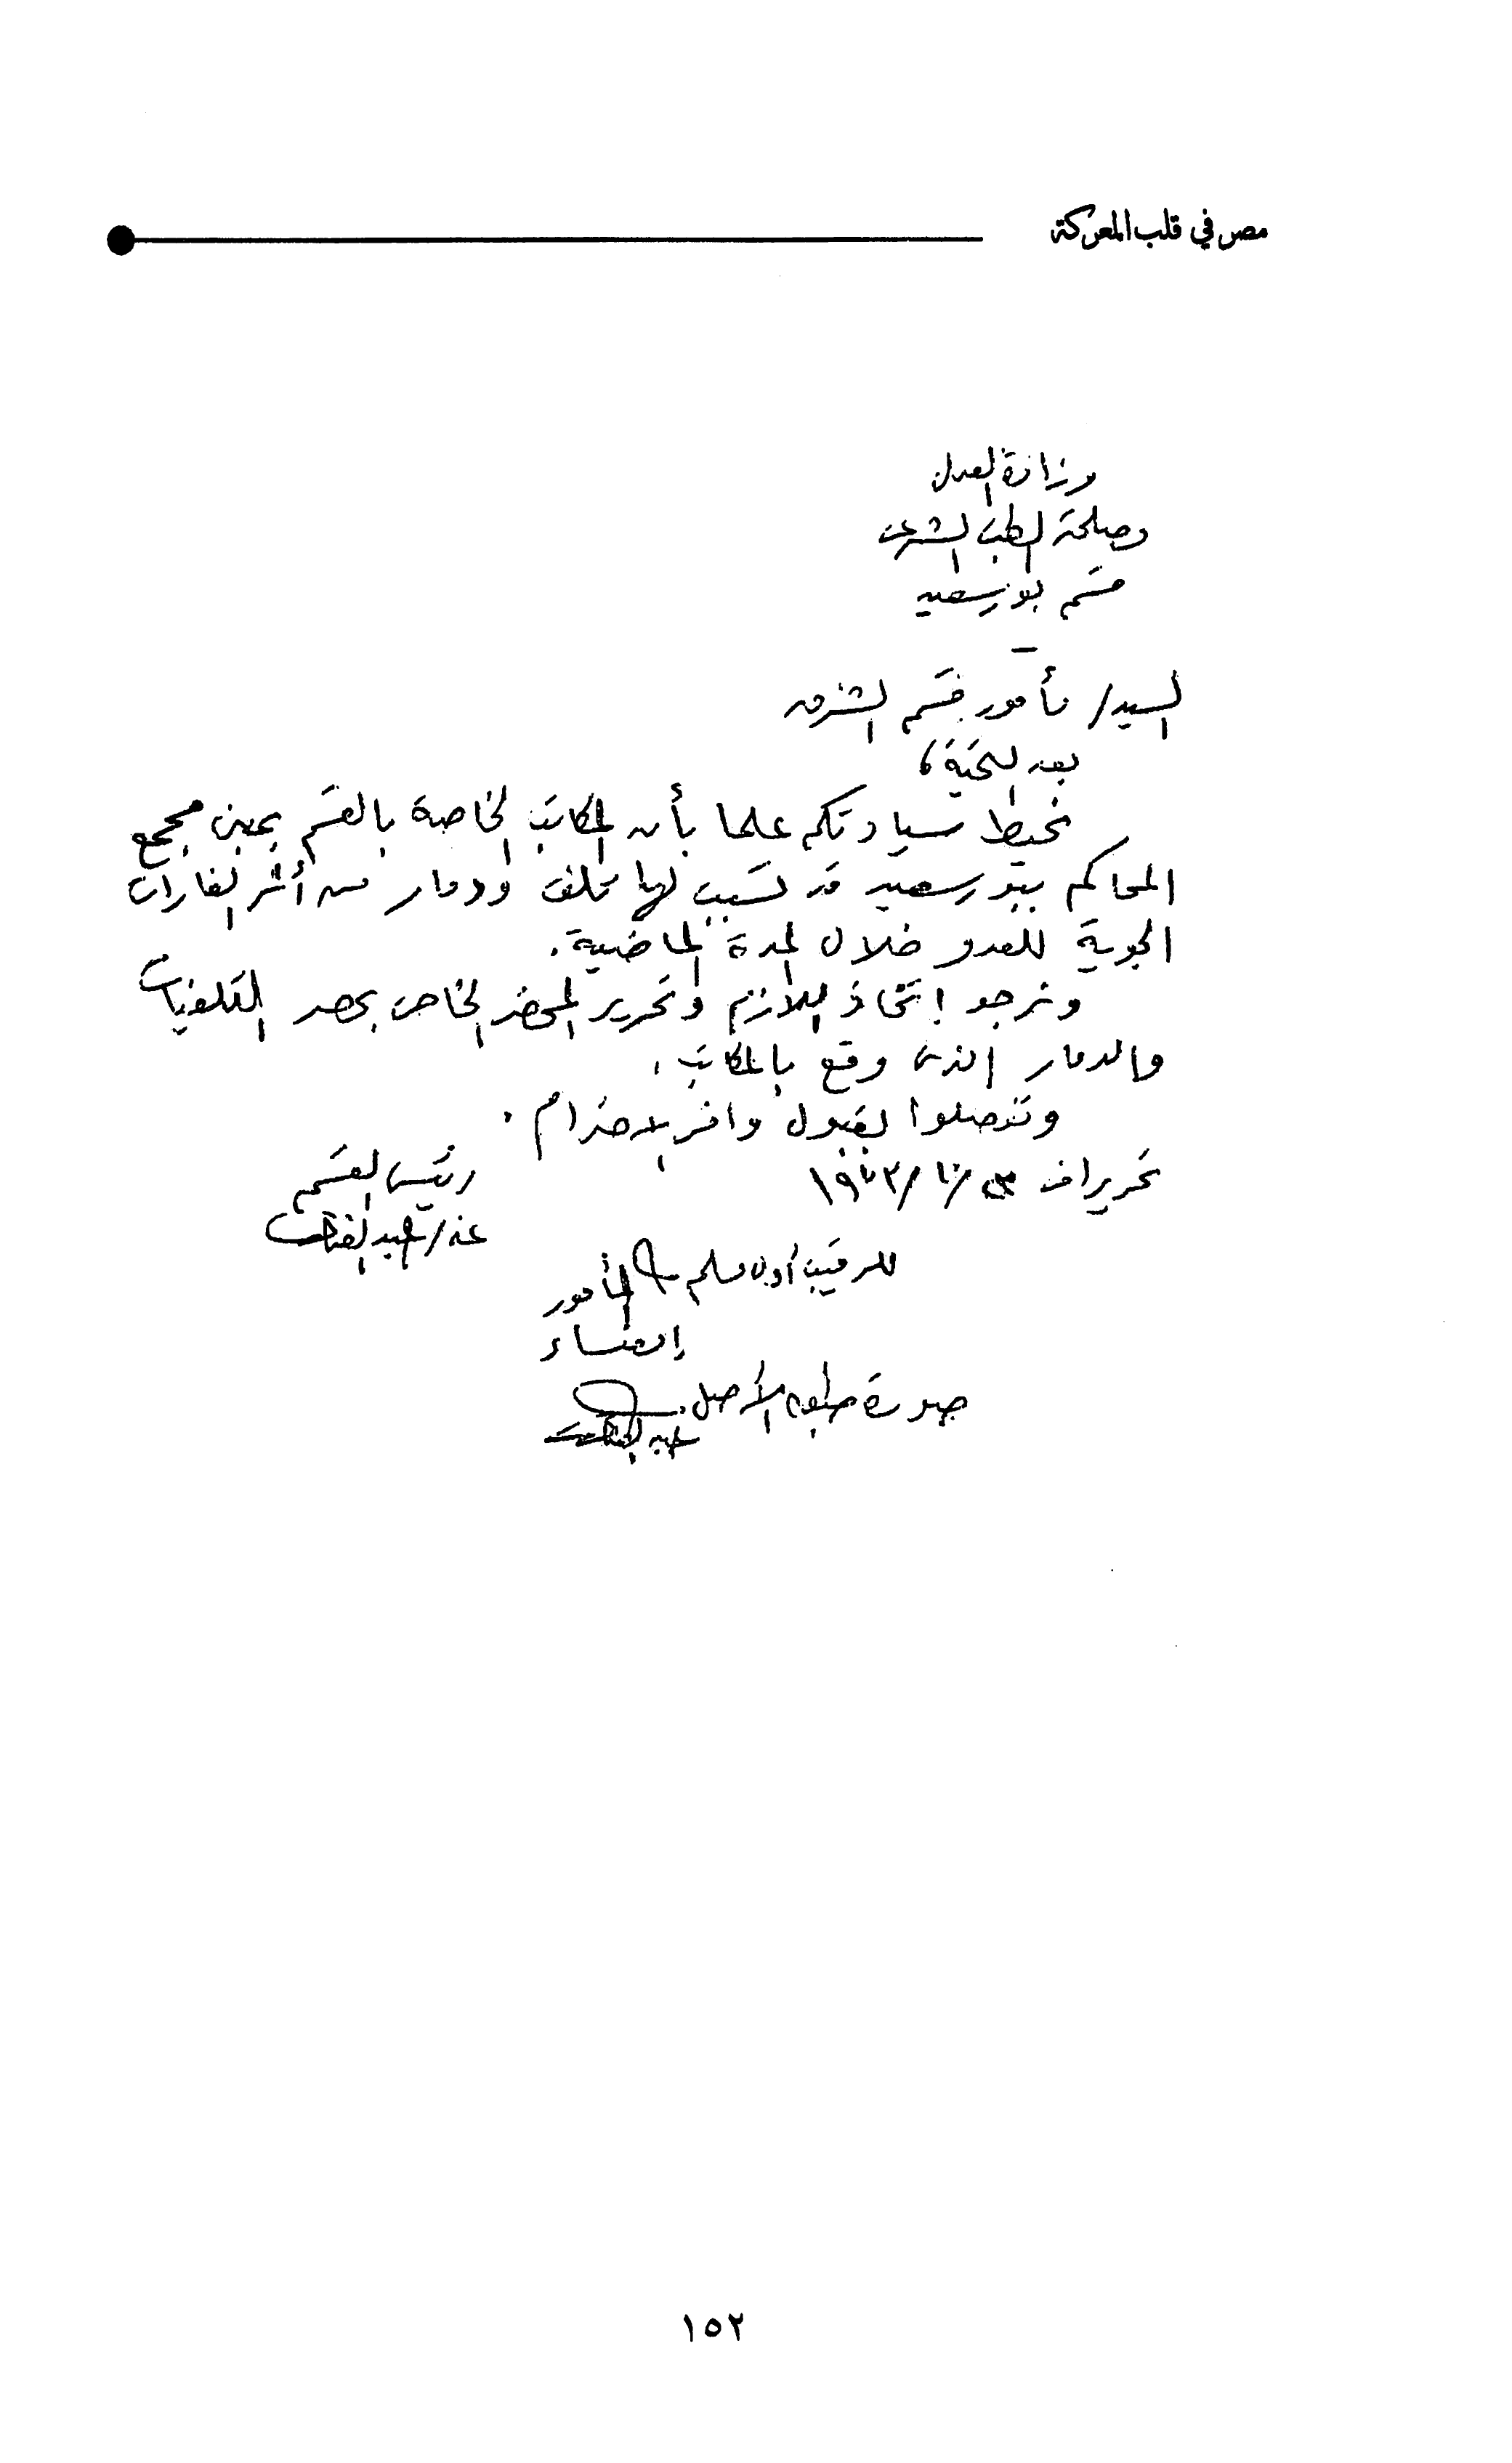 مصر في قلب المعركة
وزارة العدل
مصلحة الطب الشرعى
قسم بورسعيد
السيد/ مأمور قسم الشرق
بعد التحية،
نحيط سيادتكم علما بأن المكاتب الخاصة بالقسم بمبنى مجمع
المحاكم ببورسعيد قد تسبب لها تلف ودمار من أثر الغارات
الجوية للعدو خلال المدة الماضية.
ونرجو اتخاذ اللازم وتحرير المحضر الخاص بحصر التلفيات
والدمار الذى وقع بالمكاتب.
وتفضلوا بقبول وافر الاحترام.
تحريرا فى ١٩٧٣/١٠/٢٣
رئيس القسم
عنه/ عبد الفتاح
للرقيب أول مسلم المأمور
إمضاء
صورة طبق الأصل.
عبد الفتاح
١٥٢